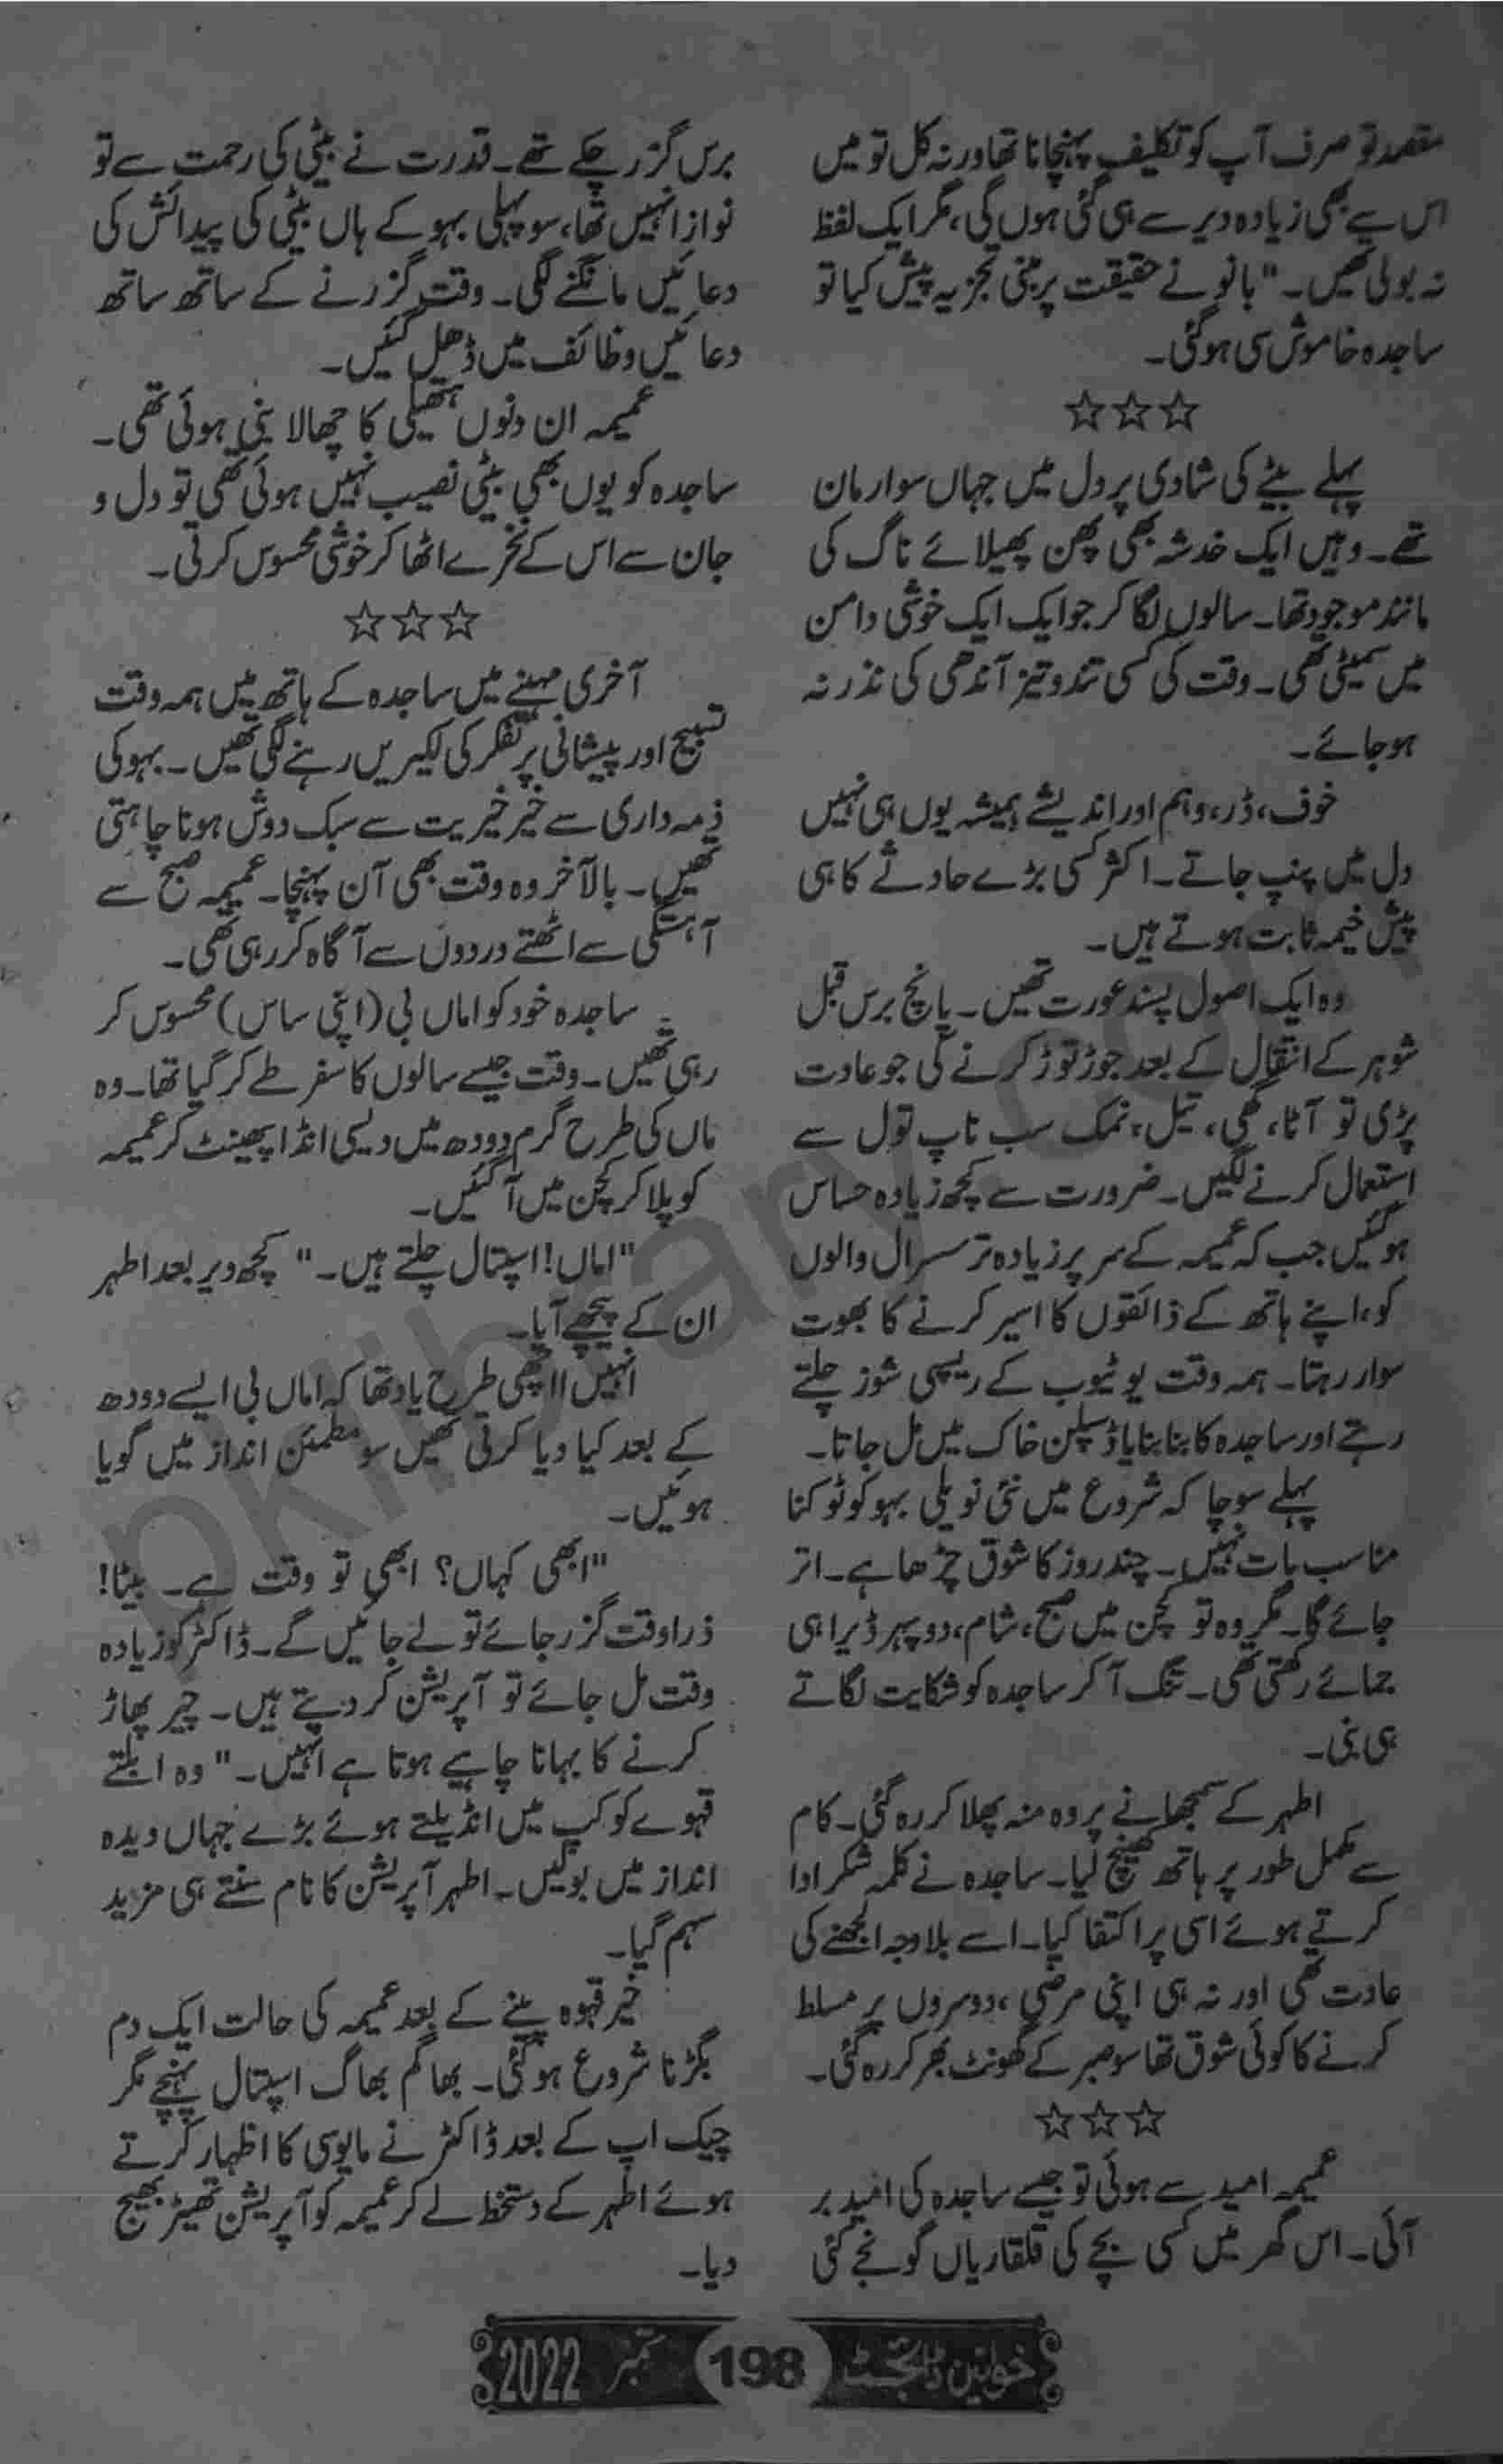 مقصد تو صرف آپ کو تکلیف پہنچانا تھا ورنہ کل تو میں
اس سے بھی زیادہ دیر سے ہی گئی ہوں گی، مگر ایک لفظ
نہ بولی تھیں۔" بانو نے حقیقت پر مبنی تجزیہ پیش کیا تو
ساجدہ خاموش سی ہوگئی۔
☆☆☆
پہلے بیٹے کی شادی پر دل میں جہاں سو ارمان
تھے۔ وہیں ایک خدشہ بھی پھن پھیلائے ناگ کی
مانند موجود تھا۔ سالوں لگا کر جو ایک ایک خوشی دامن
میں سمیٹی تھی۔ وقت کی کسی تند و تیز آندھی کی نذر نہ
ہوجائے۔
خوف، ڈر، وہم اور اندیشے ہمیشہ یوں ہی نہیں
دل میں پنپ جاتے۔ اکثر کسی بڑے حادثے کا ہی
پیش خیمہ ثابت ہوتے ہیں۔
وہ ایک اصول پسند عورت تھیں۔ پانچ برس قبل
شوہر کے انتقال کے بعد جوڑ توڑ کرنے کی جو عادت
پڑی تو آٹا، گھی، تیل، نمک سب ناپ تول سے
استعمال کرنے لگیں۔ ضرورت سے کچھ زیادہ حساس
ہوگئیں جب کہ عمیمہ کے سر پر زیادہ تر سسرال والوں
کو، اپنے ہاتھ کے ذائقوں کا اسیر کرنے کا بھوت
سوار رہتا۔ ہمہ وقت یوٹیوب کے ریسپی شوز چلتے
رہتے اور ساجدہ کا بنا بنایا ڈسپلن خاک میں مل جاتا۔
پہلے سوچا کہ شروع میں نئی نویلی بہو کو ٹوکنا
مناسب بات نہیں۔ چند روز کا شوق چڑھا ہے۔ اتر
جائے گا۔ مگر وہ تو کچن میں صبح، شام، دوپہر ڈیرا ہی
جمائے رکھتی تھی۔ تنگ آکر ساجدہ کو شکایت لگاتے
ہی بنی۔
اطہر کے سمجھانے پر وہ منہ پھلا کر رہ گئی۔ کام
سے مکمل طور پر ہاتھ کھینچ لیا۔ ساجدہ نے کلمہ شکر ادا
کرتے ہوئے اسی پر اکتفا کیا۔ اسے بلاوجہ الجھنے کی
عادت تھی اور نہ ہی اپنی مرضی، دوسروں پر مسلط
کرنے کا کوئی شوق تھا سو صبر کے گھونٹ بھر کر رہ گئی۔
☆☆☆
عمیمہ امید سے ہوئی تو جیسے ساجدہ کی امید بر
آئی۔ اس گھر میں کسی بچے کی قلقاریاں گونجے کئی
برس گزر چکے تھے۔ قدرت نے بیٹی کی رحمت سے تو
نوازا نہیں تھا، سو پہلی بہو کے ہاں بیٹی کی پیدائش کی
دعائیں مانگنے لگی۔ وقت گزرنے کے ساتھ ساتھ
دعائیں وظائف میں ڈھل گئیں۔
عمیمہ ان دنوں ہتھیلی کا چھالا بنی ہوئی تھی۔
ساجدہ کو یوں بھی بیٹی نصیب نہیں ہوئی تھی تو دل و
جان سے اس کے نخرے اٹھا کر خوشی محسوس کرتی۔
☆☆☆
آخری مہینے میں ساجدہ کے ہاتھ میں ہمہ وقت
تسبیح اور پیشانی پر تفکر کی لکیریں رہنے لگی تھیں۔ بہو کی
ذمہ داری سے خیر خیریت سے سبک دوش ہونا چاہتی
تھیں۔ بالآخر وہ وقت بھی آن پہنچا۔ عمیمہ صبح سے
آہستگی سے اٹھتے دردوں سے آگاہ کر رہی تھی۔
ساجدہ خود کو اماں بی (اپنی ساس) محسوس کر
رہی تھیں۔ وقت جیسے سالوں کا سفر طے کر گیا تھا۔ وہ
ماں کی طرح گرم دودھ میں دیسی انڈا پھینٹ کر عمیمہ
کو پلا کر کچن میں آگئیں۔
"اماں! اسپتال چلتے ہیں۔" کچھ دیر بعد اطہر
ان کے پیچھے آیا۔
انہیں اچھی طرح یاد تھا کہ اماں بی ایسے دودھ
کے بعد کیا دیا کرتی تھیں سو مطمئن انداز میں گویا
ہوئیں۔
"ابھی کہاں؟ ابھی تو وقت ہے۔ بیٹا!
ذرا وقت گزر جائے تو لے جائیں گے۔ ڈاکٹر کو زیادہ
وقت مل جائے تو آپریشن کر دیتے ہیں۔ چیر پھاڑ
کرنے کا بہانا چاہیے ہوتا ہے انہیں۔" وہ ابلتے
قہوے کو کپ میں انڈیلتے ہوئے بڑے جہاں دیدہ
انداز میں بولیں۔ اطہر آپریشن کا نام سنتے ہی مزید
سہم گیا۔
خیر قہوہ پینے کے بعد عمیمہ کی حالت ایک دم
بگڑنا شروع ہوگئی۔ بھاگم بھاگ اسپتال پہنچے مگر
چیک اپ کے بعد ڈاکٹر نے مایوسی کا اظہار کرتے
ہوئے اطہر کے دستخط لے کر عمیمہ کو آپریشن تھیٹر بھیج
دیا۔
خواتین ڈائجسٹ 198 ستمبر 2022
pklibrary.com